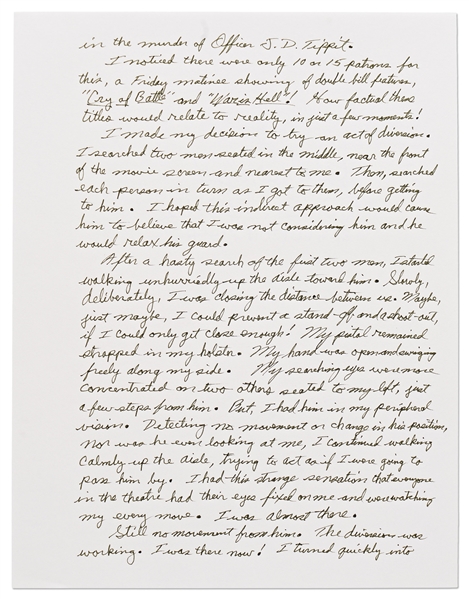 in the murder of Officer J. D. Tippit.
I noticed there were only 10 or 15 patrons for
this, a Friday matinee showing of double bill features,
"Cry of Battle" and "War is Hell"! How factual these
titles would relate to reality, in just a few moments!
I made my decision to try an act of diversion.
I searched two men seated in the middle, near the front
of the movie screen and nearest to me. Then, searched
each person in turn as I got to them, before getting
to him. I hoped this indirect approach would cause
him to believe that I was not considering him and he
would relax his guard.
After a hasty search of the first two men, I started
walking unhurriedly up the aisle toward him. Slowly,
deliberately, I was closing the distance between us. Maybe,
just maybe, I could prevent a stand-off, and a shoot out,
if I could only get close enough! My pistol remained
strapped in my holster. My hand was open and swinging
freely along my side. My searching eyes were more
concentrated on two others seated to my left, just
a few steps from him. But, I had him in my peripheral
vision. Detecting no movement or change in his position,
nor was he even looking at me, I continued walking
calmly up the aisle, trying to act as if I were going to
pass him by. I had this strange sensation that everyone
in the theatre had their eyes fixed on me and were watching
my every move. I was almost there.
Still no movement from him. The diversion was
working. I was there now! I turned quickly into